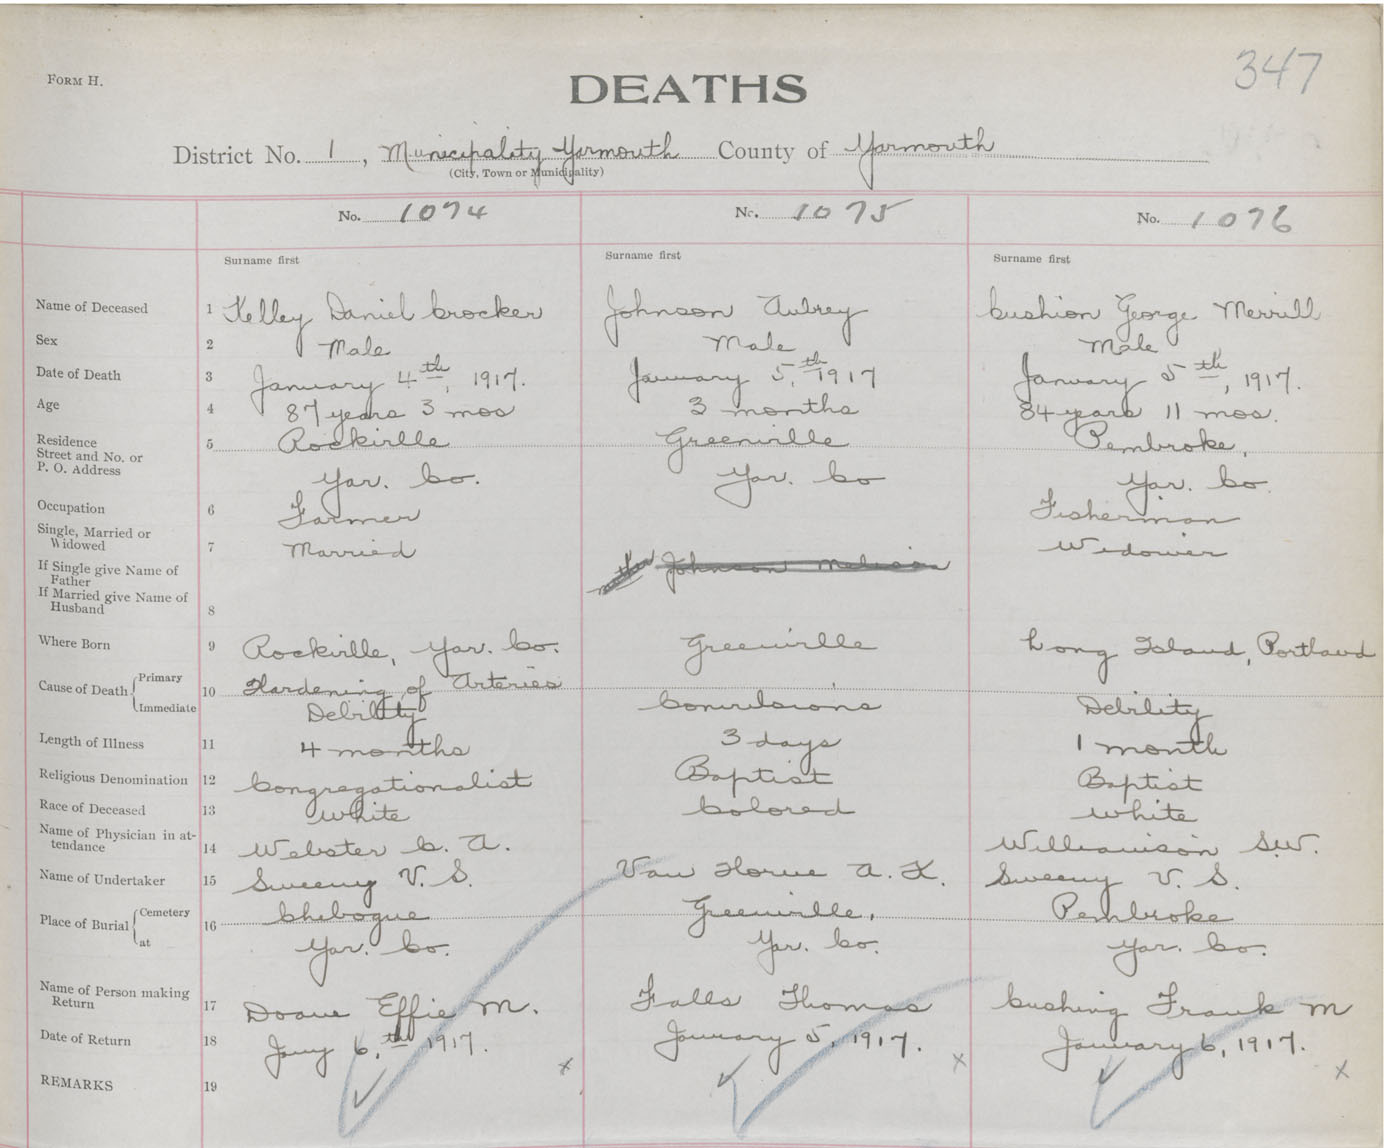 FORM H.
DEATHS
347
District No. 1, Municipality Yarmouth County of Yarmouth
(City, Town or Municipality)
No. 1074 No. 1075 No. 1076
Surname first Surname first Surname first
Name of Deceased 1 Kelley Daniel Crocker Johnson Aubrey Cushion George Merrill
Sex 2 Male Male Male
Date of Death 3 January 4th, 1917. January 5,th 1917 January 5th, 1917.
Age 4 87 years 3 mos 3 months 84 years 11 mos.
Residence
Street and No. or
P. O. Address
5 Rockville Greenville Pembroke,
Yar. Co. Yar. Co Yar. Co.
Occupation 6 Farmer Fisherman
Single, Married or
Widowed 7 Married Widower
If Single give Name of
Father
mother Johnson Melissa
If Married give Name of
Husband 8
Where Born 9 Rockville, Yar. Co. Greenville Long Island, Portland
Cause of Death Primary
Immediate
10 Hardening of Arteries
Debility Convulsions Debility
Length of Illness 11 4 months 3 days 1 month
Religious Denomination 12 Congregationalist Baptist Baptist
Race of Deceased 13 White Colored White
Name of Physician in at-
tendance 14 Webster C. A. Williamson S.W.
Name of Undertaker 15 Sweeny V. S. Van Horne A. K. Sweeny V. S.
Place of Burial Cemetery
at
16 Chebogue Greenville, Pembroke
Yar. Co. Yar. Co. Yar. Co.
Name of Person making
Return 17 Doane Effie M. Falls Thomas Cushing Frank M
Date of Return 18 Jany 6,th 1917. January 5, 1917. January 6, 1917.
x x x
REMARKS 19